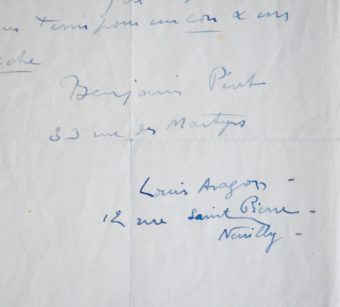 tenu pour un con x ans
Benjamin Péret
33 rue des Martyrs
Louis Aragon -
12 rue Saint Pierre -
Neuilly -